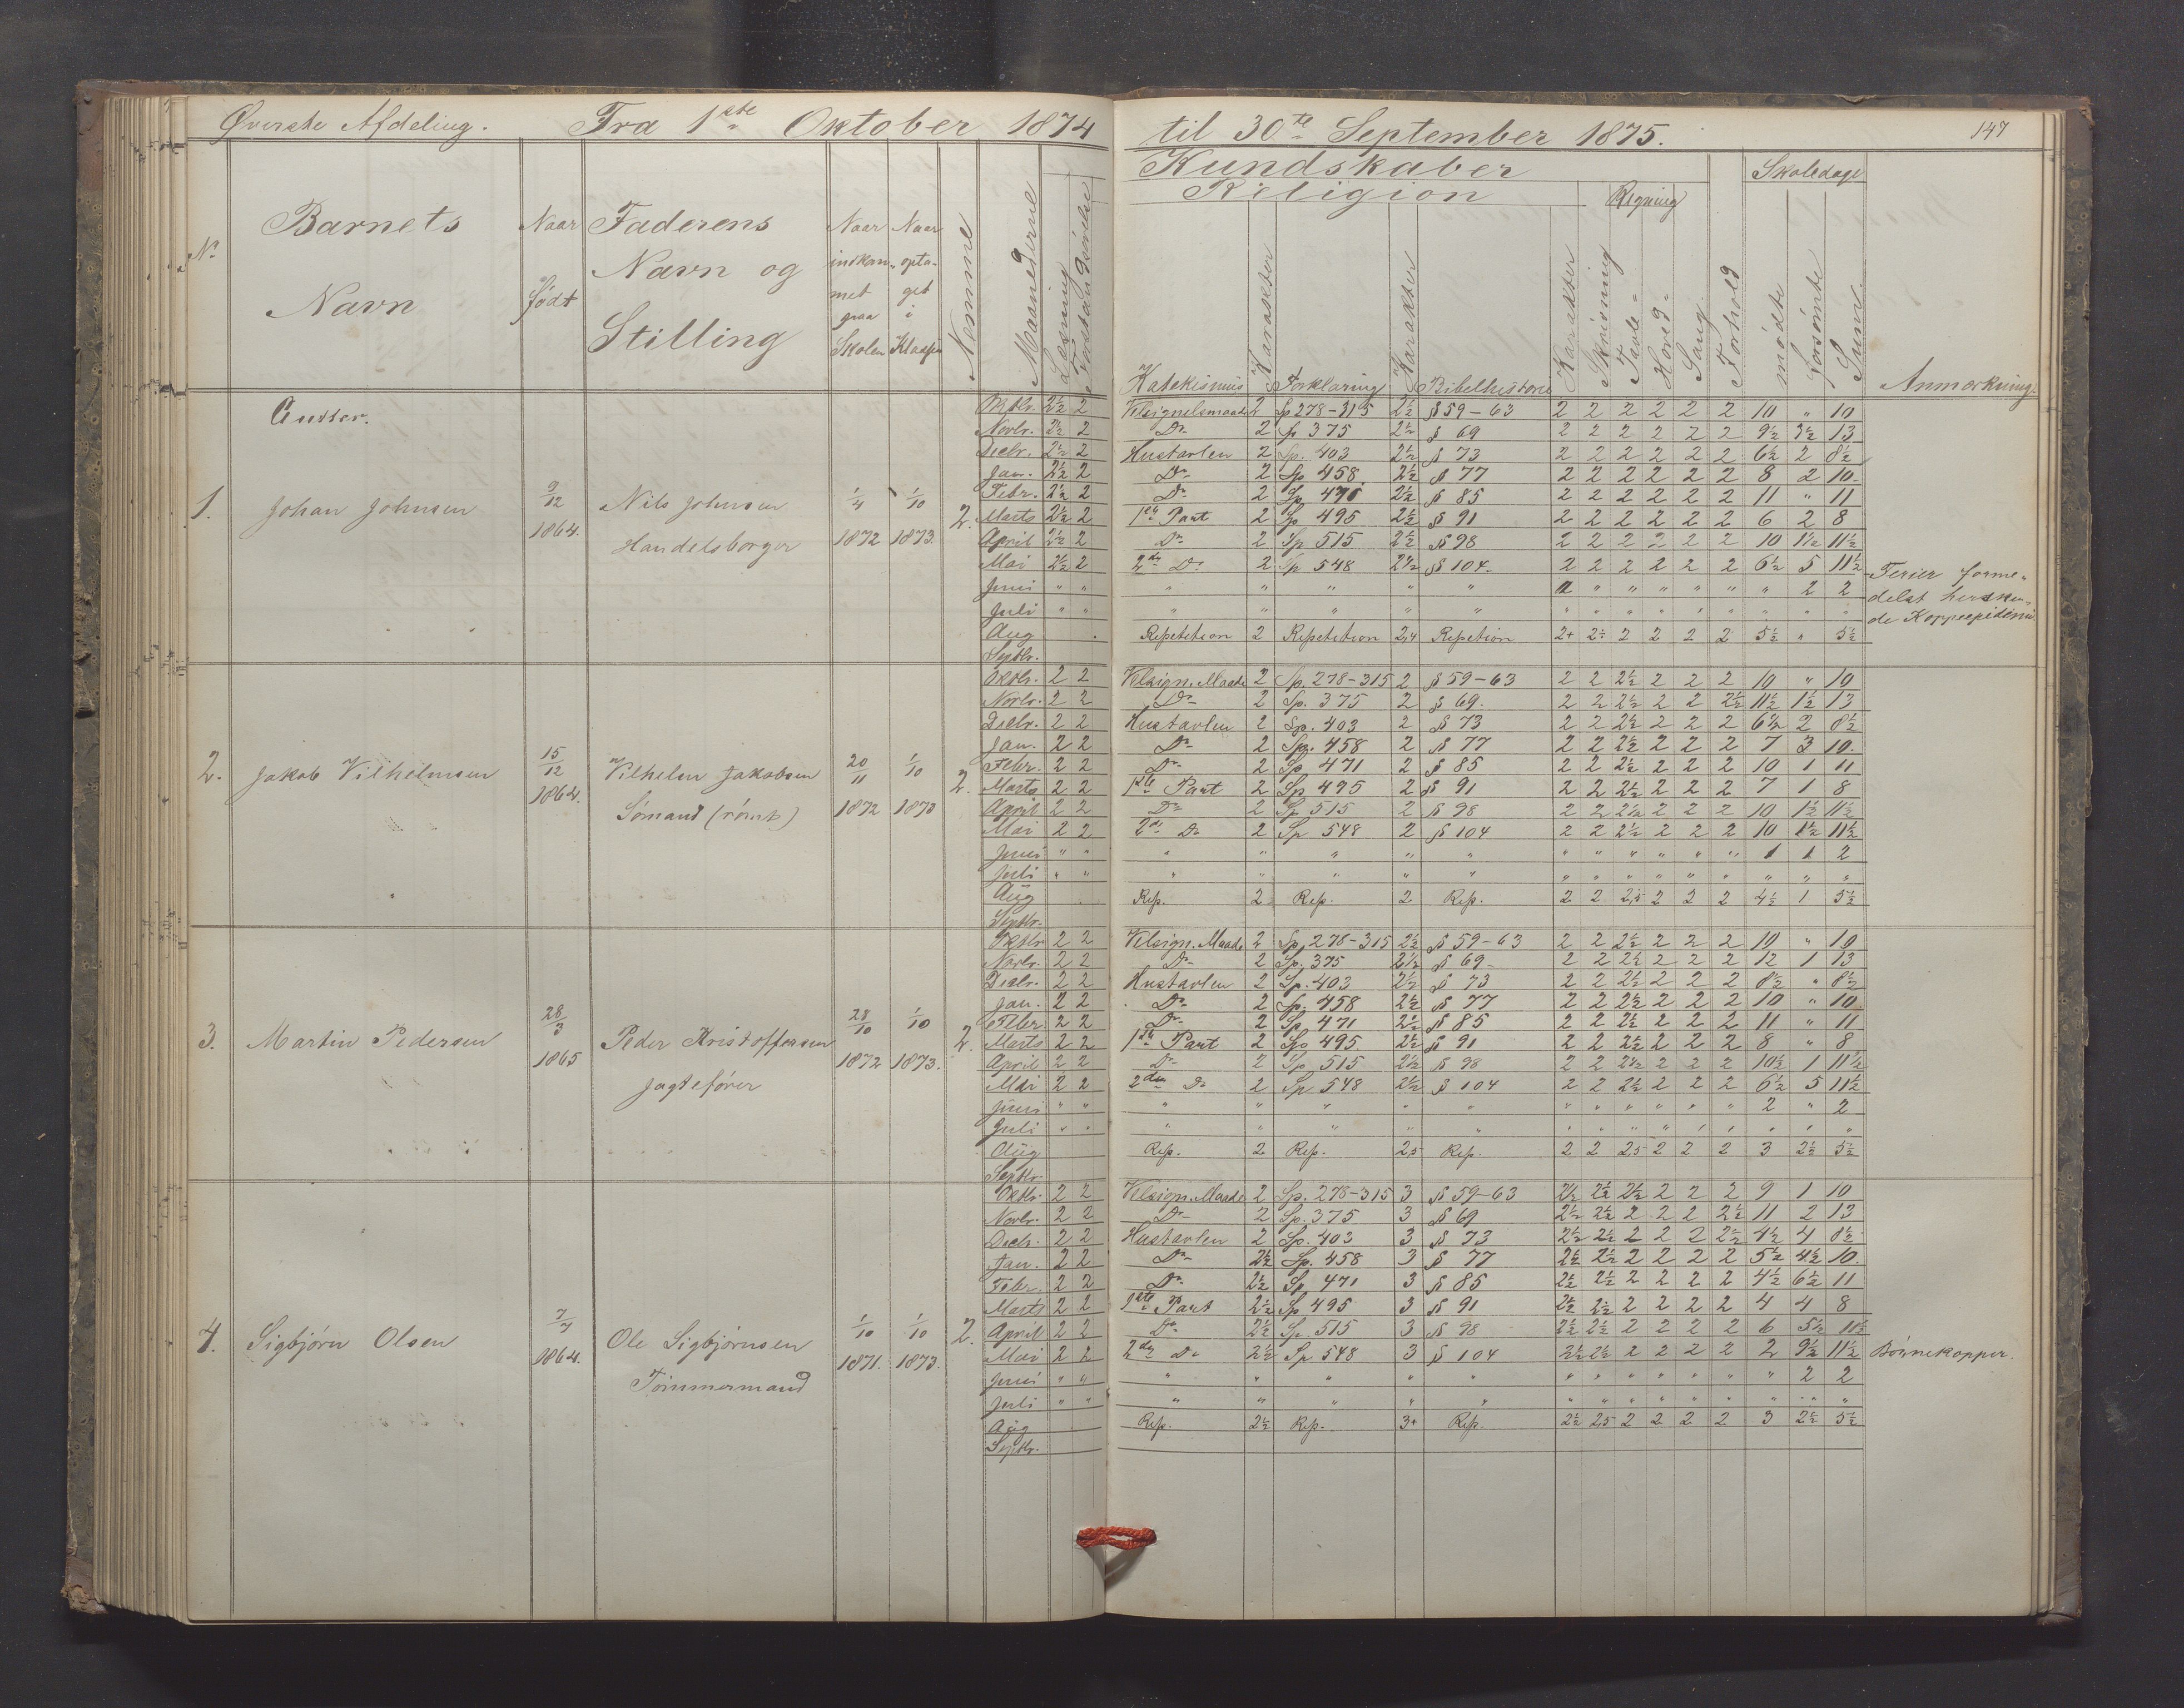 Øverste Afdeling. Fra 1ste Oktober 1874 til 30te September 1875. 147
Kundskaber
Religion Regning Skoledage
No Barnets Navn Naar født Faderens Navn og Stilling Naar indkommet paa Skolen Naar optaget i Klassen Nemme Maanederne Læsning Forstandsøvelse Katekismus Karakter Forklaring Karakter Bibelhistorie Karakter Skrivning Tavle- Hoved- Sang Forhold mødte forsømte Sum. Anmerkning.
Gutter.
1. Johan Johnsen 9/12 1864. Nils Johnsen Handelsborger 1/4 1872 1/10 1873. 2.
Oktbr. 2½ 2 Velsignelsmaaden 2 Sp 278-315 2½ § 59-63 2 2 2 2 2 2 10 " 10
Novbr. 2½ 2 Do 2 Sp 375 2½ § 69 2 2 2 2 2 2 9½ 3½ 13
Decbr. 2½ 2 Hustavlen 2 Sp. 403 2½ § 73 2 2 2 2 2 2 6½ 2 8½
Jan. 2½ 2 Do 2 Sp 458. 2½ § 77 2 2 2 2 2 2 8 2 10.
Febr. 2½ 2 Do 2 Sp 471 2½ § 85 2 2 2 2 2 2 11 " 11
Marts 2½ 2 1ste Part 2 Sp 495 2½ § 91 2 2 2 2 2 2 6 2 8
April 2½ 2 Do 2 Sp 515 2½ § 98 2 2 2 2 2 2 10 1½ 11½
Mai 2½ 2 2den Do 2 Sp 548 2½ § 104. 2 2 2 2 2 2 6½ 5 11½
Juni " " " " " " " " " " " " " 2 2
Juli " " " " " " " " " " " " " " " "
Aug Repetition 2 Repetition 2,4 Repetion 2+ 2÷ 2 2 2 2 5½ " 5½
Septbr.
Ferier forme-
delst herskende
Koppeepidemi
2. Jakob Vilhelmsen 15/12 1864. Vilhelm Jakobsen Sømand (rømt) 20/11 1872 1/10 1873 2.
Oktbr. 2 2 Velsign. Maade 2 Sp. 278-315 2 § 59-63 2 2 2½ 2 2 2 10 " 10
Novbr. 2 2 Do 2 Sp. 375 2 § 69. 2 2 2½ 2 2 2½ 11½ 1½ 13
Decbr. 2 2 Hustavlen 2 Sp. 403 2 § 73 2 2 2½ 2 2 2 6½ 2 8½
Jan. 2 2 Do 2 Sp. 458 2 § 77 2 2 2½ 2 2 2 7 3 10.
Febr. 2 2 Do 2 Sp 471 2 § 85 2 2 2½ 2 2 2 10 1 11
Marts 2 2 1ste Part 2 Sp 495 2 § 91 2 2 2½ 2 2 2 7 1 8
April 2 2 Do 2 Sp 515 2 § 98 2 2 2½ 2 2 2 10 1½ 11½
Mai 2 2 2de Do 2 Sp 548 2 § 104 2 2 2½ 2 2 2 10 1½ 11½
Juni " " " " " " " " " " " " " 1 1 2
Juli " " " " " " " " " " " " " " " "
Aug Rep. 2 Rep. 2 Rep. 2 2 2,5 2 2 2 4½ 1 5½
Septbr.
3. Martin Pedersen 28/3 1865 Peder Kristoffersen Jagtefører 28/10 1872 1/10 1873. 2.
Oktbr 2 2 Velsign. Maade 2 Sp 278-315 2½ § 59-63 2 2 2½ 2 2 2 10 " 10
Novbr. 2 2 Do 2 Sp. 375 2½ § 69- 2 2 2½ 2 2 2 12 1 13
Decbr. 2 2 Hustavlen 2 Sp. 403 2½ § 73 2 2 2½ 2 2 2 8½ " 8½
Jan. 2 2 Do 2 Sp. 458 2½ § 77 2 2 2½ 2 2 2 10 " 10.
Febr. 2 2 Do 2 Sp 471 2½ § 85 2 2 2½ 2 2 2 11 " 11
Marts 2 2 1ste Part 2 Sp 495 2½ § 91 2 2 2½ 2 2 2 8 " 8
April 2 2 Do 2 Sp 515 2½ § 98 2 2 2½ 2 2 2 10½ 1 11½
Mai 2 2 2den Do 2 Sp 548 2½ § 104 2 2 2½ 2 2 2 6½ 5 11½
Juni " " " " " " " " " " " " " 2 " 2
Juli " " " " " " " " " " " " " " " "
Aug Rep. 2 Rep. 2,5 Rep. 2 2 2,5 2 2 2 3 2½ 5½
Septbr.
4. Sigbjørn Olsen 7/7 1864. Ole Sigbjørnsen Tømmermand 1/10 1871. 1/10 1873. 2.
Oktbr. 2 2 Velsign. Maade 2 Sp. 278-315 3 § 59-63 2½ 2½ 2½ 2 2 2 9 1 10
Novbr. 2 2 Do 2 Sp. 375 3 § 69 2½ 2½ 2 2 2 2½ 11 2 13
Decbr. 2 2 Hustavlen 2 Sp. 403 3 § 73 2½ 2½ 2 2 2 2½ 4½ 4 8½
Jan. 2 2 Do 2½ Sp. 458 3 § 77 2½ 2½ 2 2 2 2 5½ 4½ 10.
Febr. 2 2 Do 2½ Sp 471 3 § 85 2½ 2½ 2 2 2 2 4½ 6½ 11
Marts 2 2 1ste Part 2½ Sp 495 3 § 91 2½ 2½ 2 2 2 2 4 4 8
April 2 2 Do 2½ Sp. 515 3 § 98 2½ 2½ 2 2 2 2 6 5½ 11½
Mai 2 2 2den Do 2½ Sp 548 3 § 104 2½ 2½ 2 2 2 2 2 9½ 11½ Børnekopper.
Juni " " " " " " " " " " " " " " 2 2
Juli " " " " " " " " " " " " " " " "
Aug Rep. 2½ Rep. 3+ Rep. 2½ 2,5 2 2 2 2 3 2½ 5½
Septbr.